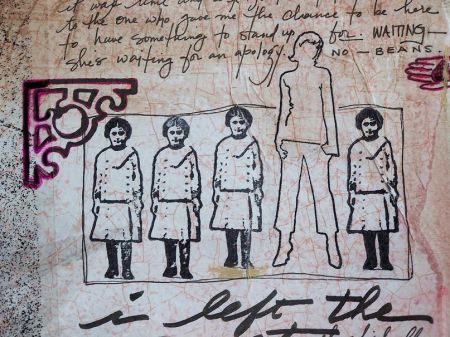 it was time and
to the one who gave me the chance to be here
to have something to stand up for. WAITING—
she's waiting for an apology. NO — BEANS.
i left the